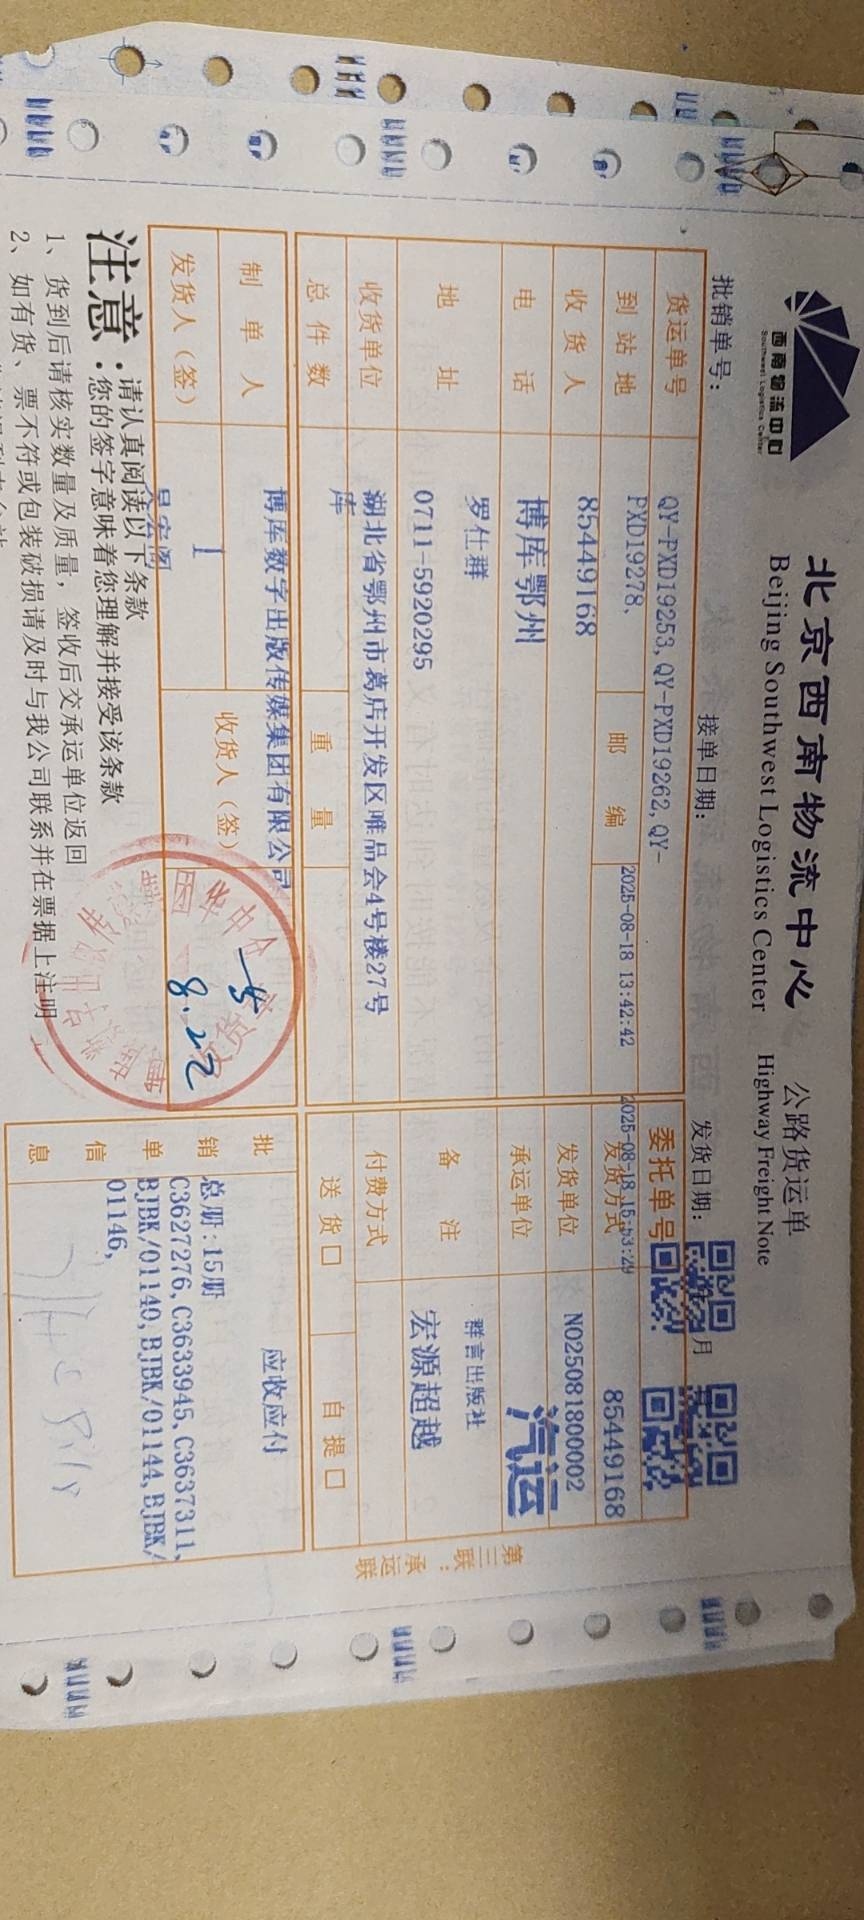 西南物流中心
Southwest Logistics Center
北京西南物流中心 公路货运单
Beijing Southwest Logistics Center Highway Freight Note
批销单号：
接单日期：
发货日期：
月
QY-PXD19253, QY-PXD19262, QY-
PXD19278,
2025-08-18 13:42:42
2025-08-18 15:53:29
货运单号
委托单号
85449168
到站地
邮编
发货方式
85449168
N025081800002
收货人
博库鄂州
发货单位
汽运
电话
承运单位
罗仕群
群言出版社
地址
0711-5920295
备注
宏源超越
收货单位
湖北省鄂州市葛店开发区唯品会4号楼27号
库
付费方式
总件数
重量
送货□
自提□
博库数字出版传媒集团有限公司
制单人
收货人（签）
发货人（签）
1
8.22
批销单信息
应收应付
总册:15册
C3627276, C3633945, C3637311,
BJBK/01140, BJBK/01144, BJBK/
01146,
第三联：承运联
注意：
请认真阅读以下条款
您的签字意味着您理解并接受该条款
1、货到后请核实数量及质量，签收后交承运单位返回
2、如有货、票不符或包装破损请及时与我公司联系并在票据上注明